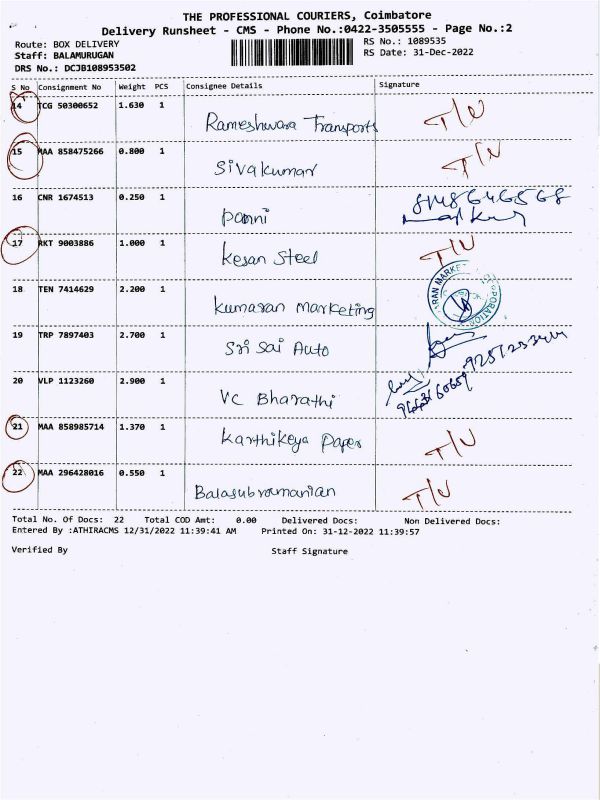 THE PROFESSIONAL COURIERS, Coimbatore
Delivery Runsheet - CMS - Phone No.:0422-3505555 - Page No.:2
Route: BOX DELIVERY RS No.: 1089535
Staff: BALAMURUGAN RS Date: 31-Dec-2022
DRS No.: DCJB108953502
S No Consignment No Weight PCS Consignee Details Signature
14 TCG 50300652 1.630 1 Rameshwara Transports T/N
15 MAA 858475266 0.800 1 Sivakumar T/N
16 CNR 1674513 0.250 1 Panni
17 RKT 9003886 1.000 1 Kesan Steel T/N
18 TEN 7414629 2.200 1 Kumaran Marketing
19 TRP 7897403 2.700 1 Sri Sai Auto
20 VLP 1123260 2.900 1 VC Bharathi
21 MAA 858985714 1.370 1 Karthikeya Paper T/N
22 MAA 296428016 0.550 1 Balasubramanian T/N
Total No. Of Docs: 22 Total COD Amt: 0.00 Delivered Docs: Non Delivered Docs:
Entered By :ATHIRACMS 12/31/2022 11:39:41 AM Printed On: 31-12-2022 11:39:57
Verified By Staff Signature